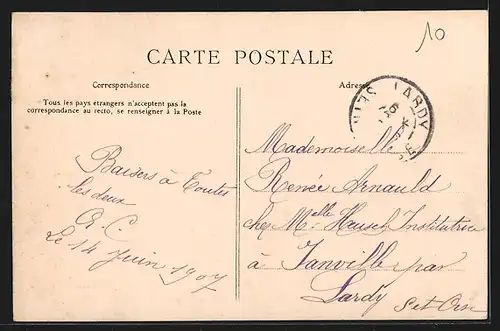 10
CARTE POSTALE
Correspondance
Tous les pays étrangers n'acceptent pas la
correspondance au recto, se renseigner à la Poste
Baisers à Toutes
les deux
R. C.
Le 14 Juin 1907
Adresse
LARDY
Mademoiselle
Renée Arnauld
chez Melle Hausch Institutrice
à Janville par
Lardy Set Oise